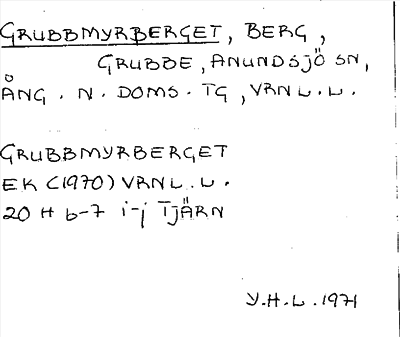 GRUBBMYRBERGET, BERG,
GRUBBE, ANUNDSJÖ SN,
ÅNG. N. DOMS. TG, VRNL.L.
GRUBBMYRBERGET
EK (1970) VRNL.L.
20 H 6-7 i-j TJÄRN
Y.H.L. 1971